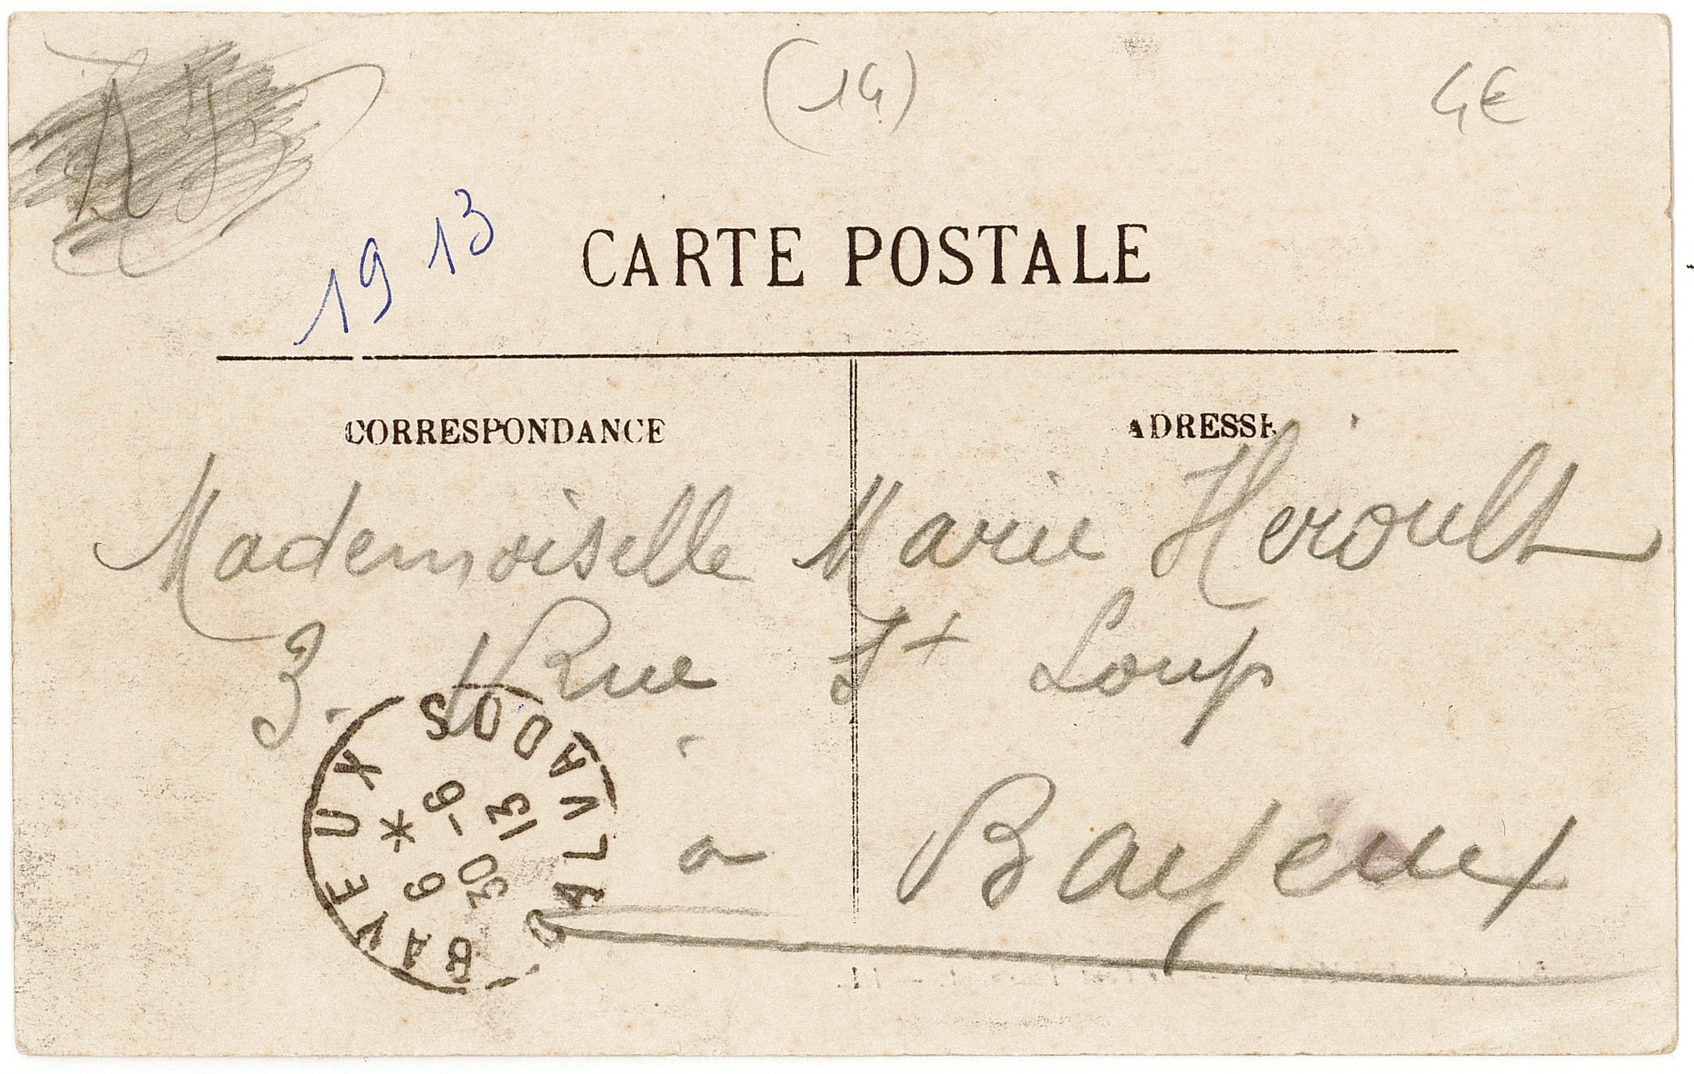 (14)
4€
1913
CARTE POSTALE
CORRESPONDANCE
ADRESSE
Mademoiselle Marie Heroult
3. Rue St Loup
a Bayeux
BAYEUX CALVADOS
* 6 30 -6 13